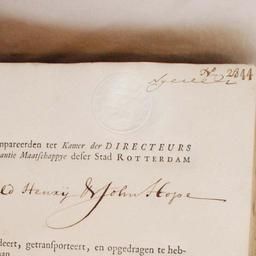 No. 2344
mpareerden ter Kamer der DIRECTEURS
rantie Maatschappye deser Stad ROTTERDAM
ld Henry & John Hope
deert, getransporteert, en opgedragen te heb-